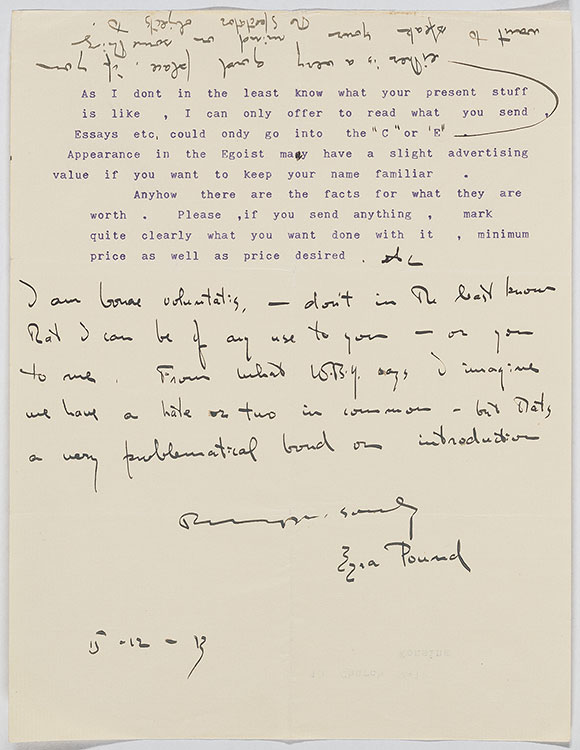 either is a very good place, if you
want to speak your mind on something
The Spectator objects to.
As I dont in the least know what your present stuff
is like , I can only offer to read what you send .
Essays etc, could ondy go into the "C" or 'E' .
Appearance in the Egoist may have a slight advertising
value if you want to keep your name familiar .
Anyhow there are the facts for what they are
worth . Please ,if you send anything , mark
quite clearly what you want done with it , minimum
price as well as price desired .
I am bonae voluntatis, — don't in the least know
that I can be of any use to you — or you
to me. From what W.B.Y. says I imagine
we have a hate or two in common — but thats
a very problematical bond on introduction
Ezra Pound
15 - 12 - 13